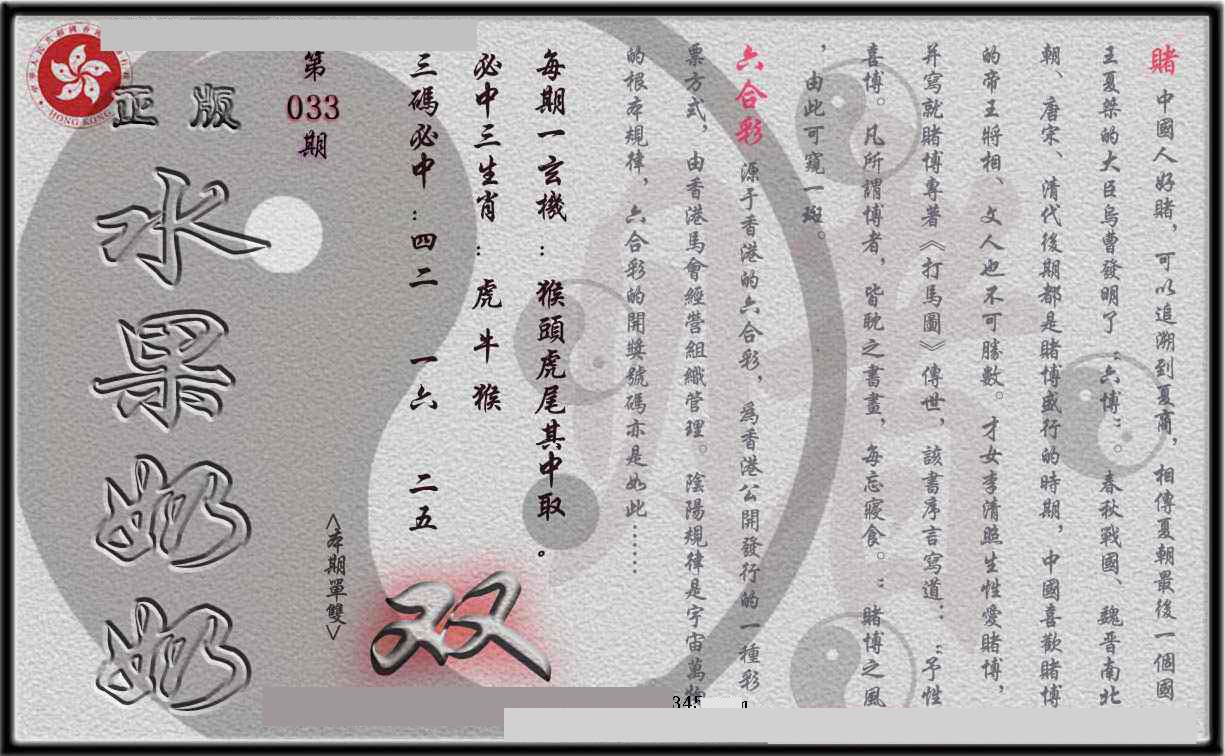 賭 中國人好賭，可以追溯到夏商，相傳夏朝最後一個國
王夏桀的大臣烏曹發明了“六博”。春秋戰國、魏晉南北
朝、唐宋、清代後期都是賭博盛行的時期，中國喜歡賭博
的帝王將相、文人也不可勝數。才女李清照生性愛賭博，
并寫就賭博專著《打馬圖》傳世，該書序言寫道：“予性
喜博。凡所謂博者，皆耽之書畫，每忘寢食。”賭博之風
，由此可窺一斑。
六合彩 源于香港的六合彩，為香港公開發行的一種彩
票方式，由香港馬會經營組織管理。陰陽規律是宇宙萬物
的根本規律，六合彩的開獎號碼亦是如此……
每期一玄機：猴頭虎尾其中取。
必中三生肖：虎 牛 猴
三碼必中：四二 一六 二五
双
<本期單雙>
第
033
期
正版
水果奶奶
HONG KONG
345